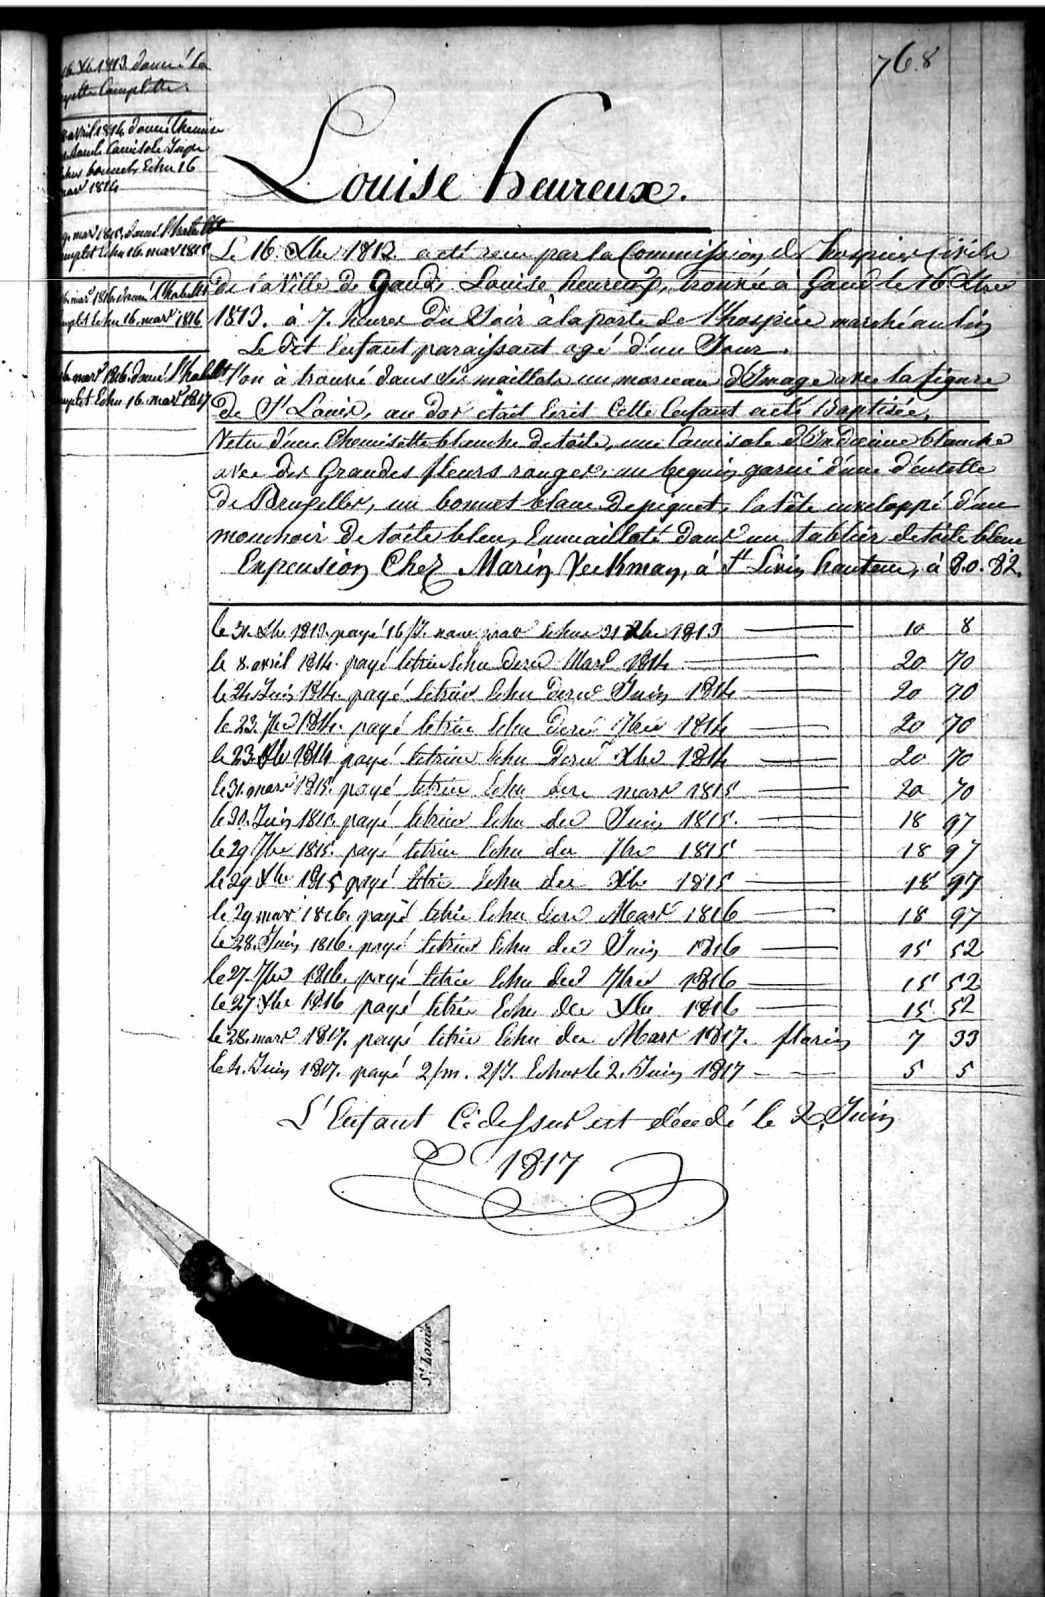 768
16 Xbre 1813 donné la
layette Complette
8 avril 1814 donné Chemise
Camisole Jupe
bonnets Echu 16
mars 1814
mars 1815 donné l'habillt
complet Echu 16. mars 1815
mars 1816 donné l'habillt
complet Echu 16. mars 1816
mars 1816. donné l'habillt
complet Echu 16. mars 1817
Louise heureux.
Le 16. Xbre 1813 a été recu par la Commission des hospices Civils
de la Ville de Gand, Louise heureux, trouvée à Gand le 16 Xbre
1813. à 7. heures du Soir à la porte de l'hospice marché au lin
Le dit Enfant paraissant agé d'un Jour.
l'on à trouvé dans ses maillots un morceau d'Image avec la figure
de St Louis, au dos était Ecrit Cette Enfant a été Baptisée,
Vetu d'une Chemisette blanche de toile, une Camisole d'Indienne blanche
avec des Grandes fleurs rouges, un beguin garni d'une dentelle
de Bruxelles, un bonnet blanc de piquet, la tête enveloppé d'un
mouchoir de toile bleu, Emmailloté dans un tablier de toile bleue
En pension Chez Marin Veckman, à St Livin hautem, à 8.0.82.
le 31. Xbre 1813. payé 16/J. Echus 31 Xbre 1813 10 8
le 8. avril 1814. payé letrim Echu dern Mars 1814 20 70
le 24 Juin 1814. payé letrim Echu dern Juin 1814 20 70
le 23. 7bre 1814. payé letrim Echu dern 7bre 1814 20 70
le 23. Xbre 1814 payé letrim Echu dern Xbre 1814 20 70
le 31. mars 1815. payé letrim Echu dern mars 1815 20 70
le 30. Juin 1815. payé letrim Echu der Juin 1815. 18 97
le 29 7bre 1815. payé letrim Echu der 7bre 1815 18 97
le 29 Xbre 1815 payé letri Echu der Xbre 1815 18 97
le 29 mars 1816. payé letrim Echu dern Mars 1816 18 97
le 28. Juin 1816. payé letrim Echu der Juin 1816 15 52
le 27. 7bre 1816. payé letrim Echu der 7bre 1816 15 52
le 27 Xbre 1816 payé letrim Echu der Xbre 1816 15 52
le 28. mars 1817. payé letrim Echu der Mars 1817. florins 7 33
le 4. Juin 1817. payé 2/m. 2/J. Echus le 2. Juin 1817 5 5
L'Enfant Cidessus est décedé le 2. Juin
1817
St Louis